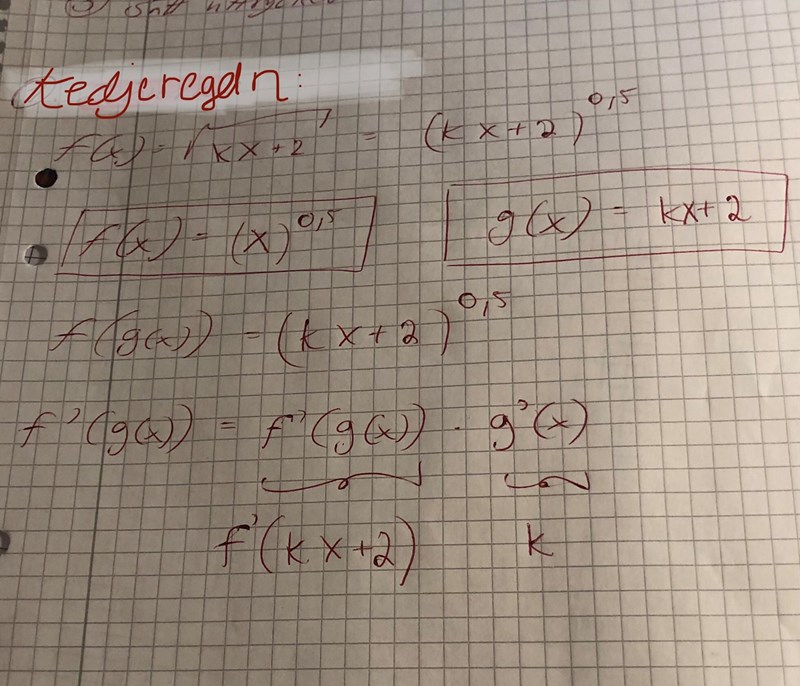 Kedjeregeln:
f(x) = √(kx+2) = (kx+2)^0,5
f(x) = (x)^0,5 g(x) = kx+2
f(g(x)) = (kx+2)^0,5
f'(g(x)) = f'(g(x)) · g'(x)
f'(kx+2) k